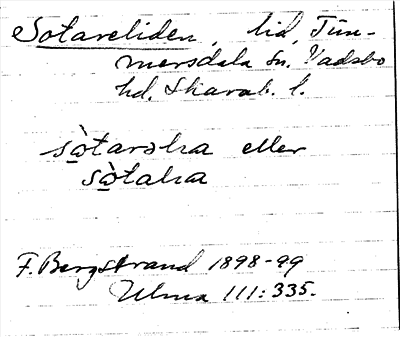 Sotareliden, lid, Tim-
mersdala sn. Vadsbo
hd. Skarab. l.
sò̲tarəlia eller
sò̲talia
F. Bergstrand 1898-99
Ulma 111:335.